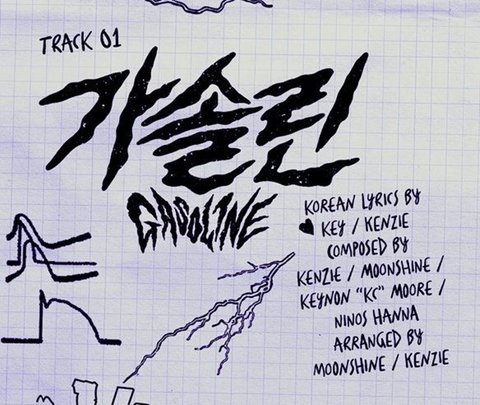 TRACK 01
가솔린
GASOLINE
KOREAN LYRICS BY
♥ KEY / KENZIE
COMPOSED BY
KENZIE / MOONSHINE /
KEYNON "KC" MOORE /
NINOS HANNA
ARRANGED BY
MOONSHINE / KENZIE